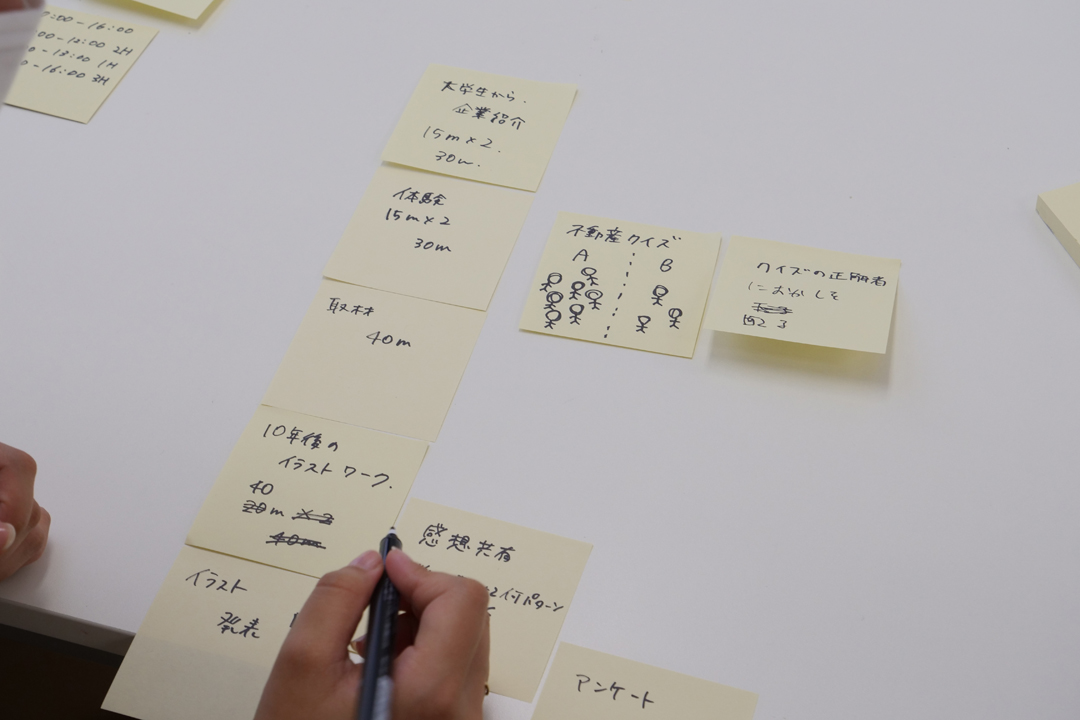 :00-16:00
:00-12:00 2H
-13:00 1H
-16:00 3H
大学生から.
企業紹介
15m×2.
30m.
体験
15m×2
30m
取材
40m
不動産クイズ
A
B
クイズの正解者
におかしを
10年後の
イラストワーク.
40
20m ×2
40m
イラスト
発表
感想共有
パターン
アンケート